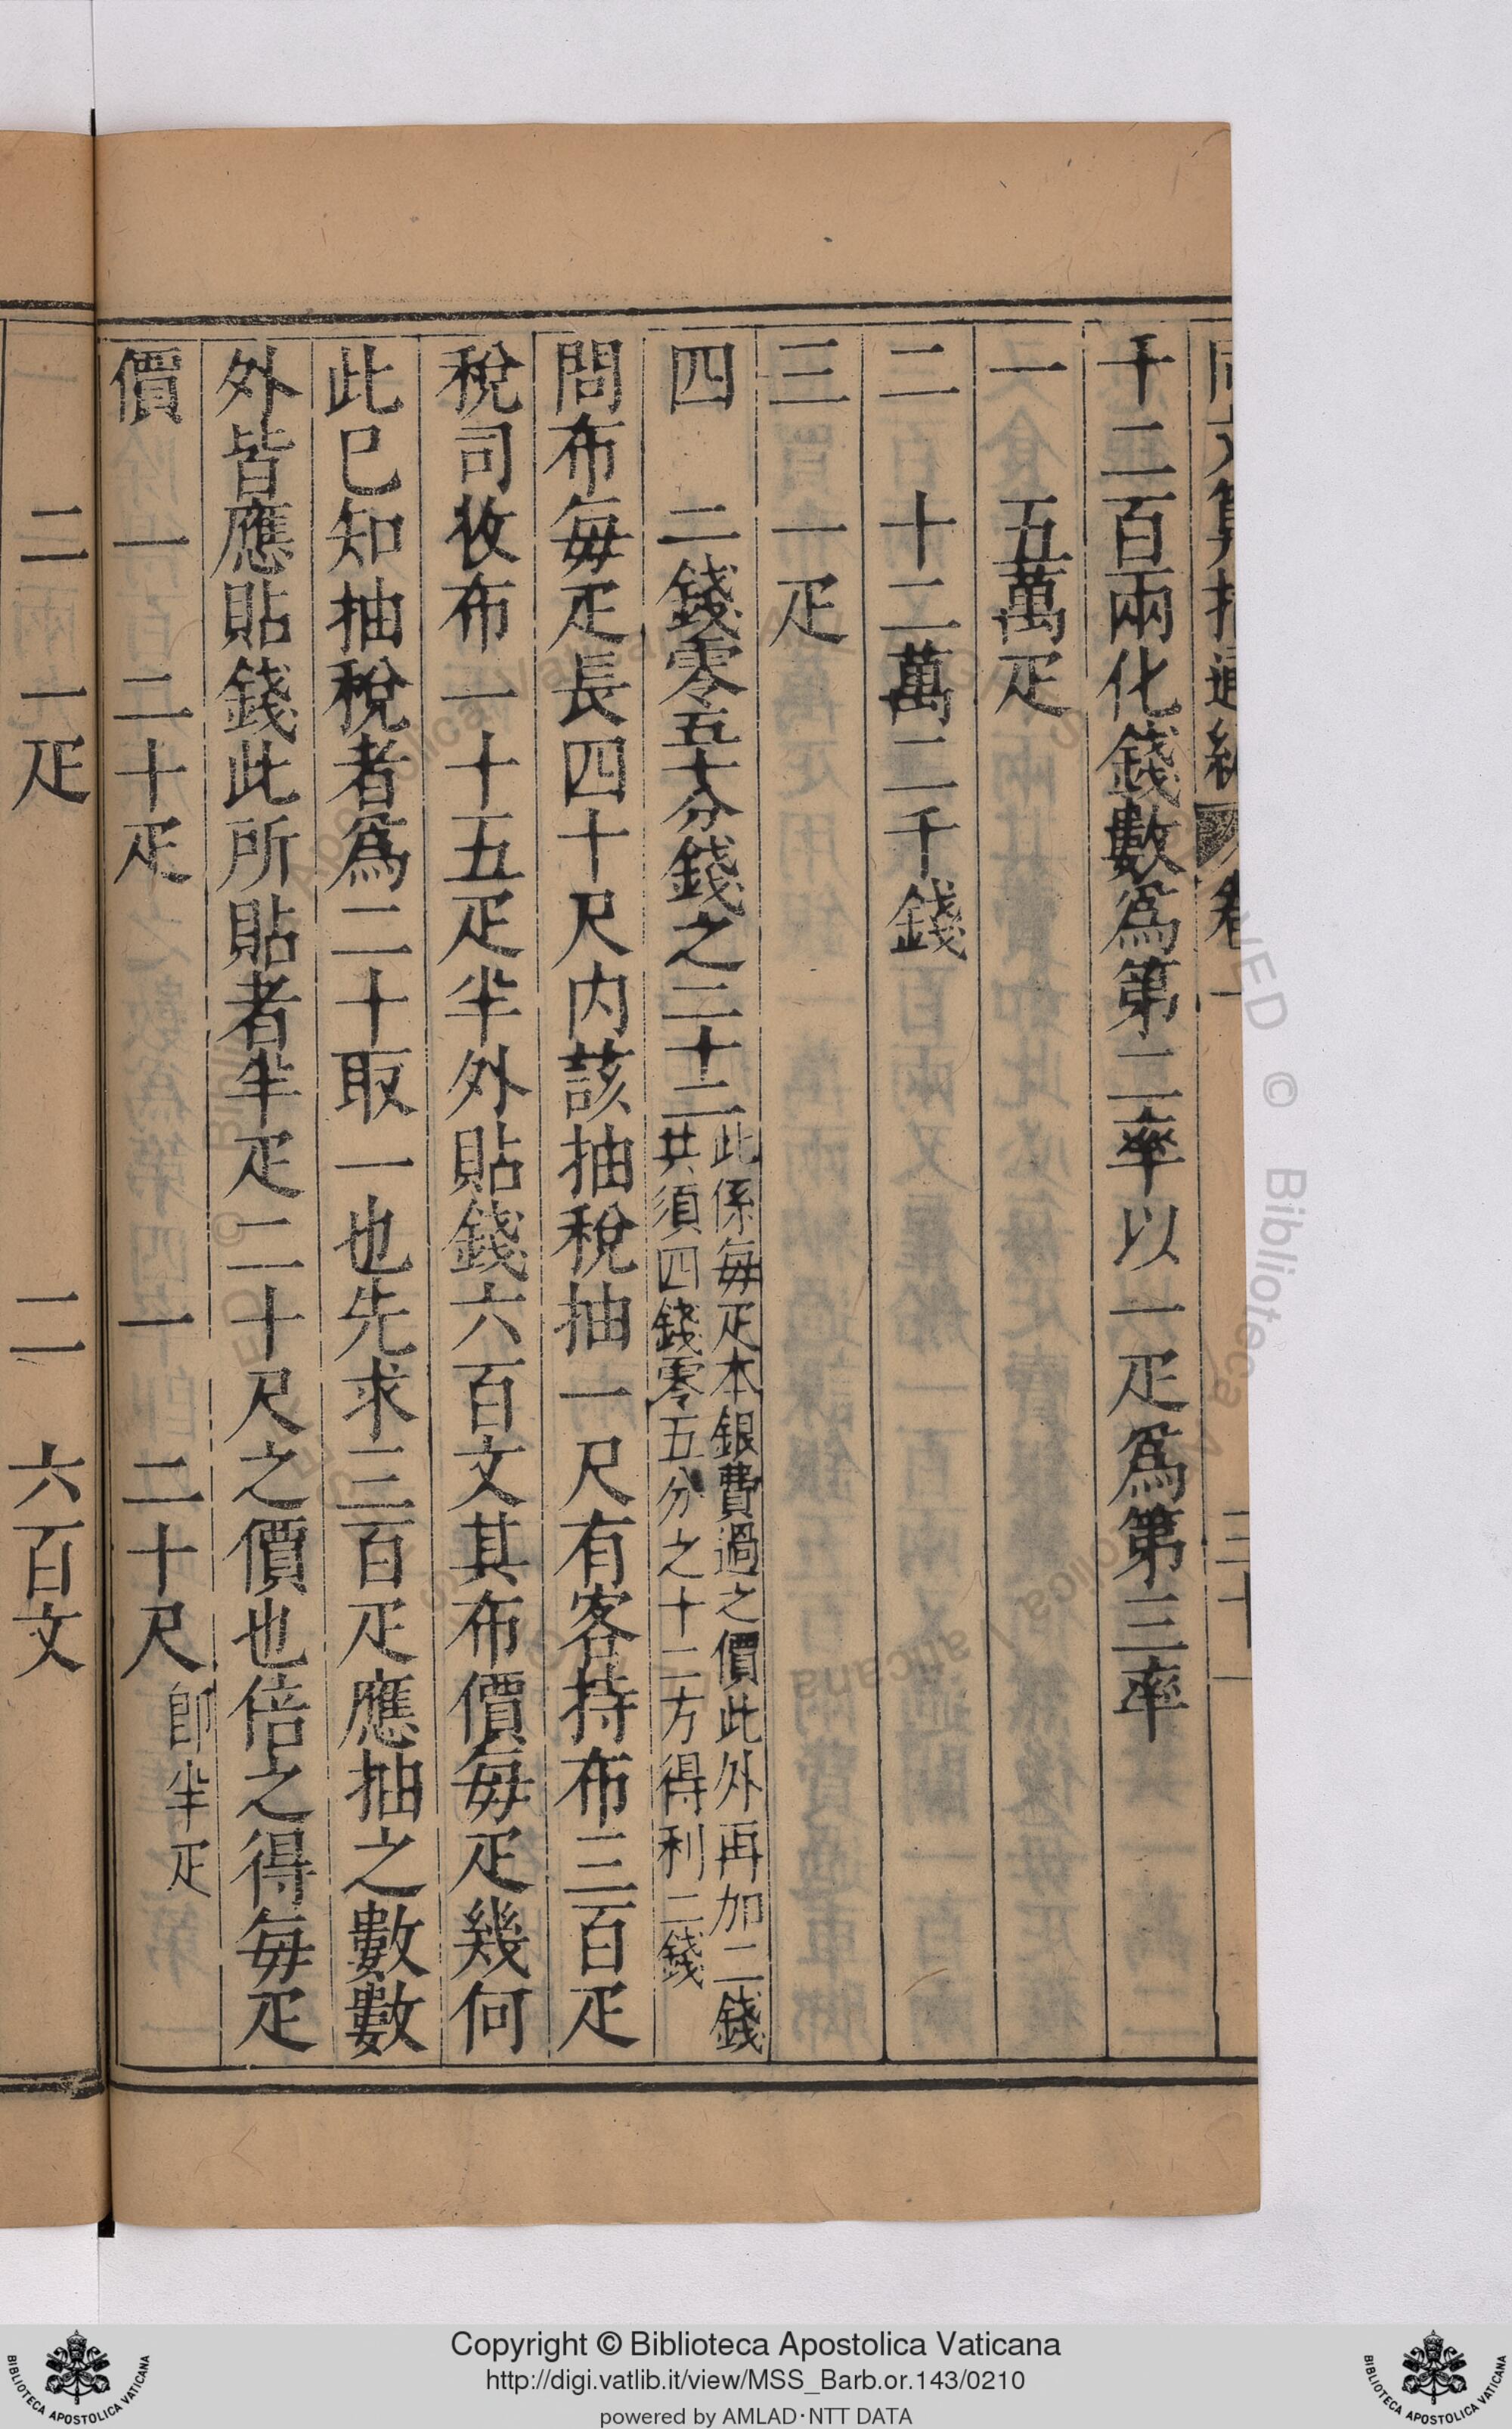 同文算指通編 卷一 三十一
千二百兩化錢數爲第二率以一疋爲第三率
一 五萬疋
二 十二萬二千錢
三 一疋
四 二錢零五十分錢之二十二
此係每疋本銀費過之價此外再加二錢
共須四錢零五分之十二方得利二錢
問布每疋長四十尺内該抽稅抽一尺有客持布三百疋
稅司收布一十五疋半外貼錢六百文其布價每疋幾何
此已知抽稅者爲二十取一也先求三百疋應抽之數數
外皆應貼錢此所貼者半疋二十尺之價也倍之得每疋
價 一 二十疋 一 二十尺 即半疋
二 一疋 二 六百文
Copyright © Biblioteca Apostolica Vaticana
http://digi.vatlib.it/view/MSS_Barb.or.143/0210
powered by AMLAD·NTT DATA
BIBLIOTECA APOSTOLICA VATICANA
BIBLIOTECA APOSTOLICA VATICANA